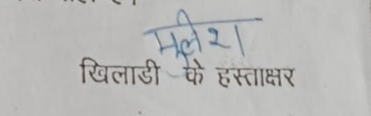 मुलेश
खिलाडी के हस्ताक्षर